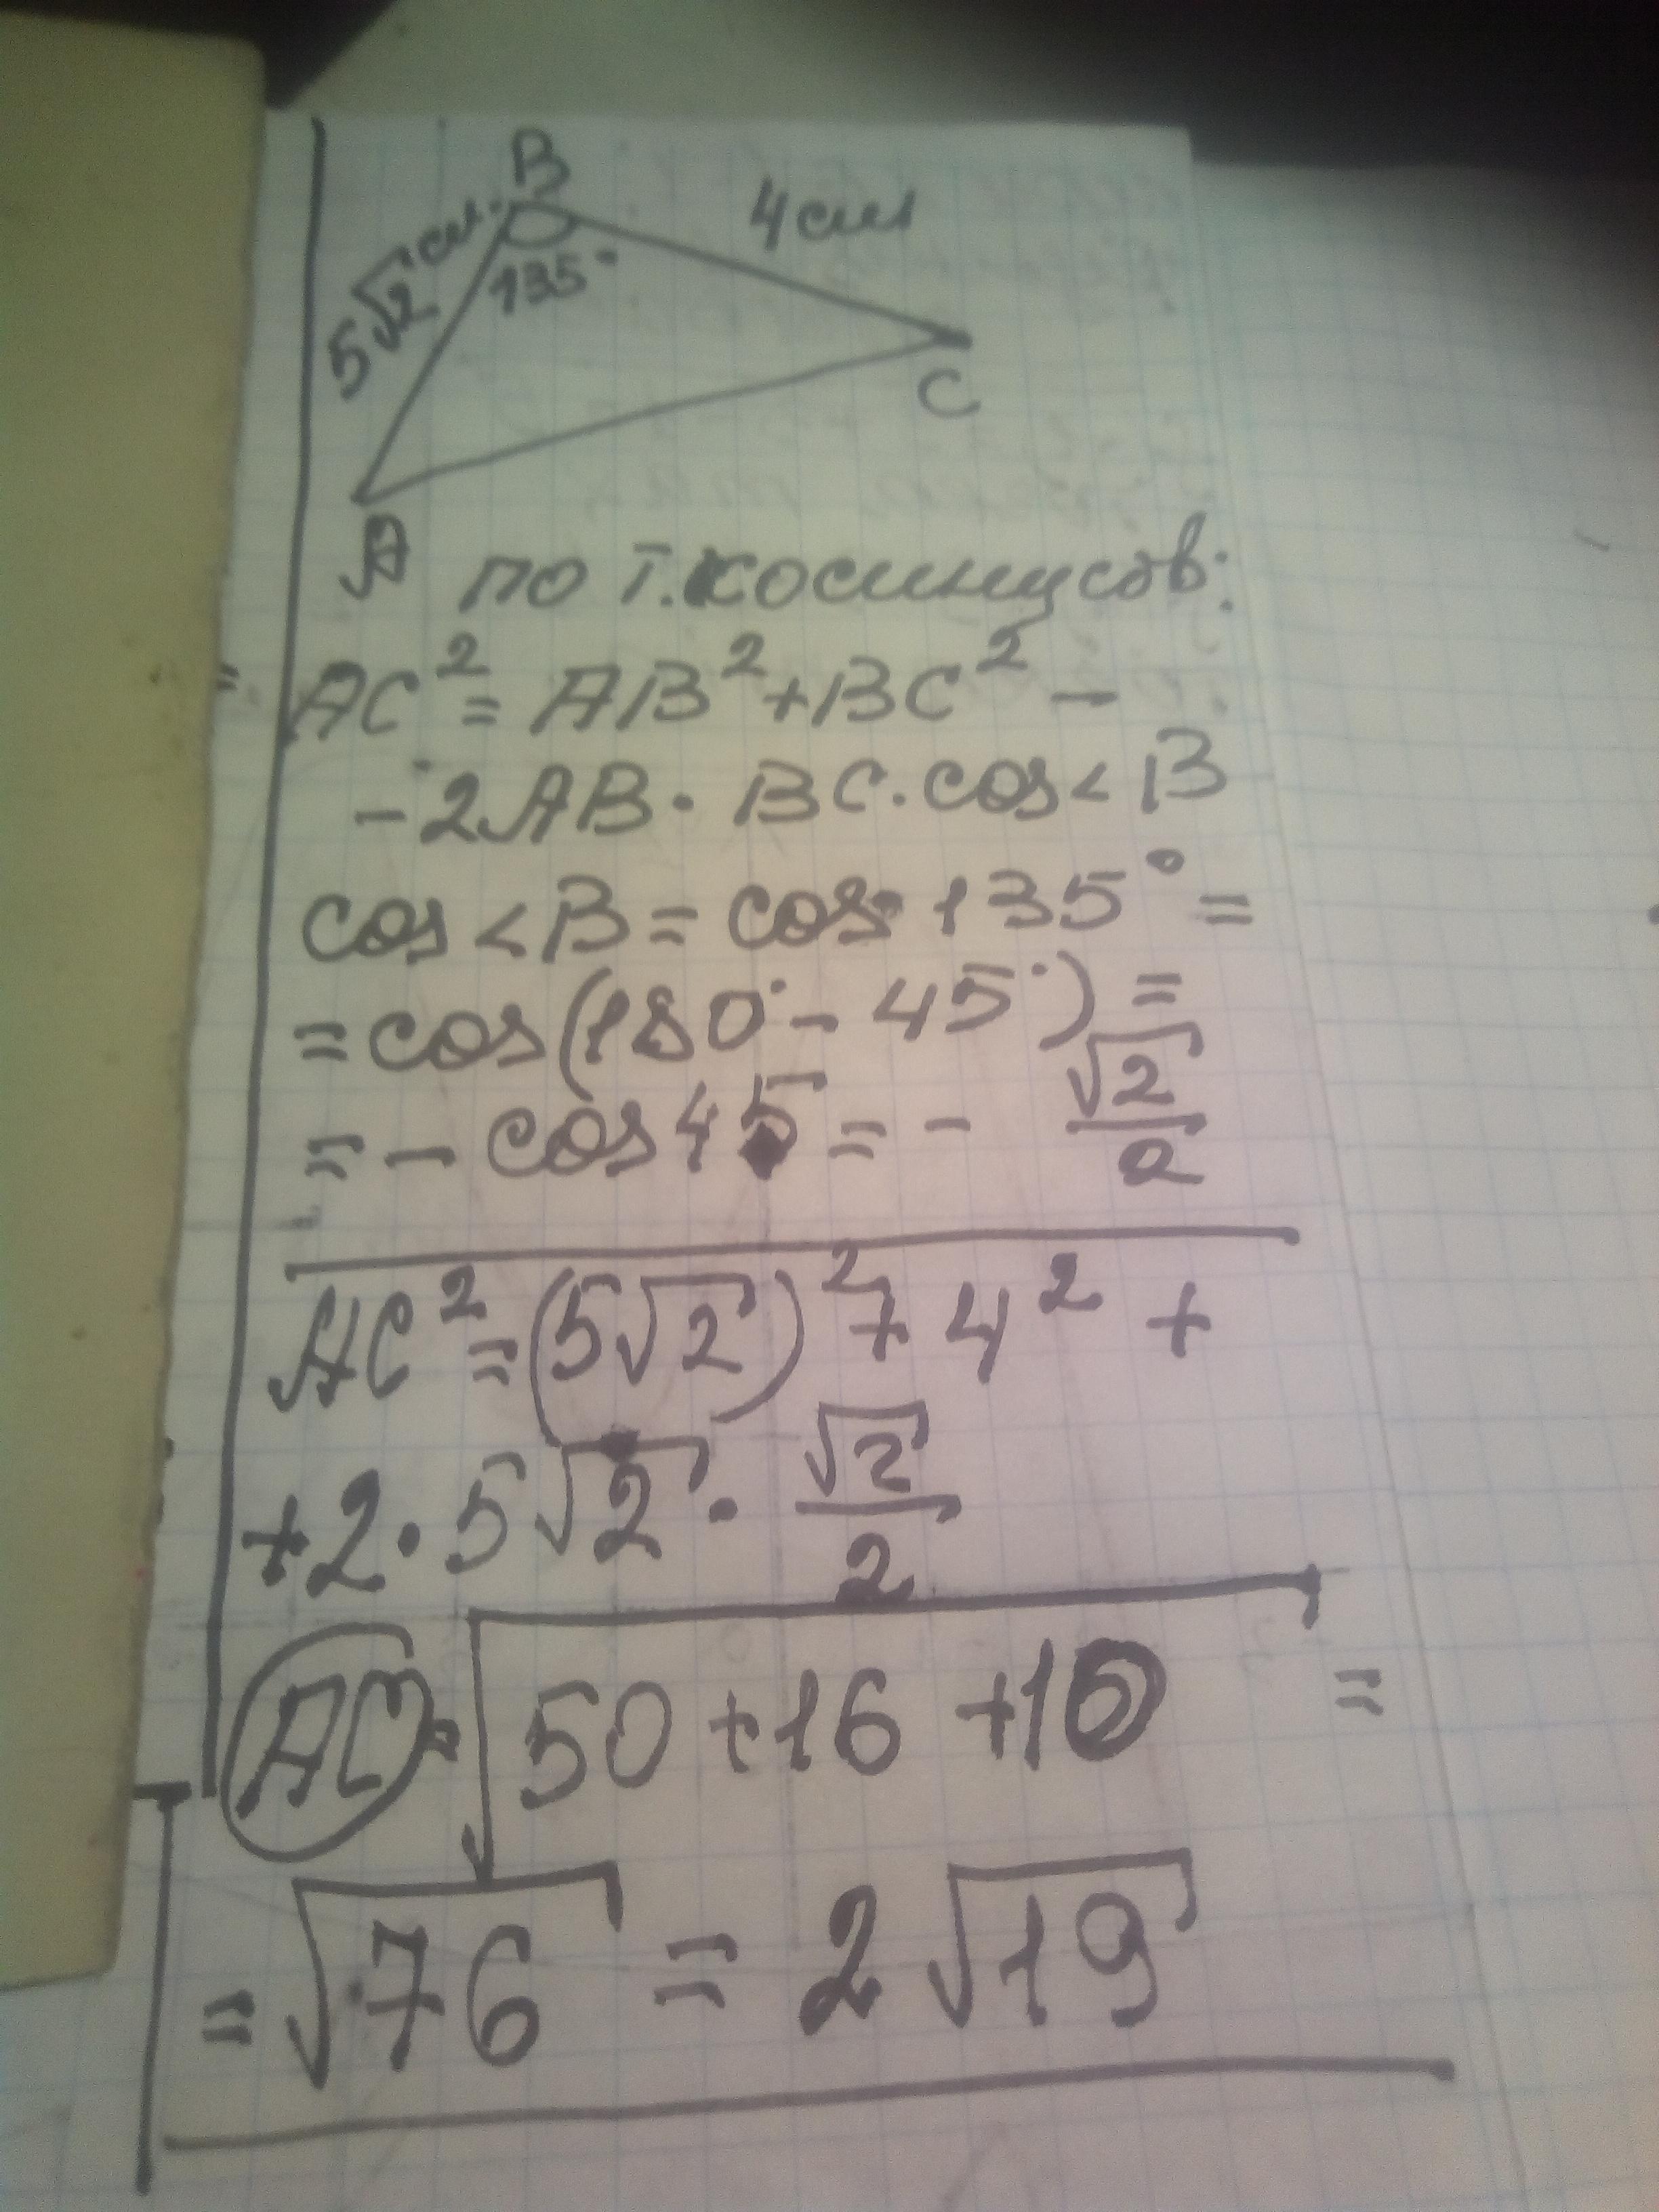 B
5√2 см.
4 см
135°
C
A
по т. косинусов:
AC² = AB² + BC² –
– 2AB · BC · cos < B
cos < B = cos 135° =
= cos (180° – 45°) =
= – cos 45 = – √2/2
AC² = (5√2)² + 4² +
+ 2 · 5√2 · √2/2
AC = √50 + 16 + 10 =
= √76 = 2√19